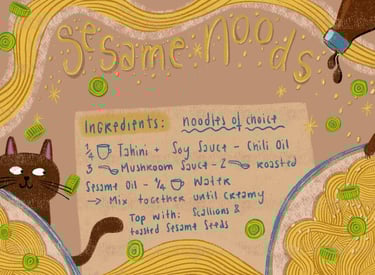 Sesame noods
Ingredients: noodles of choice
1/4 Tahini + Soy Sauce - Chili Oil
3 Mushroom Sauce - 2 roasted
Sesame Oil - 1/4 Water
→ Mix together until creamy
Top with: Scallions &
toasted Sesame Seeds